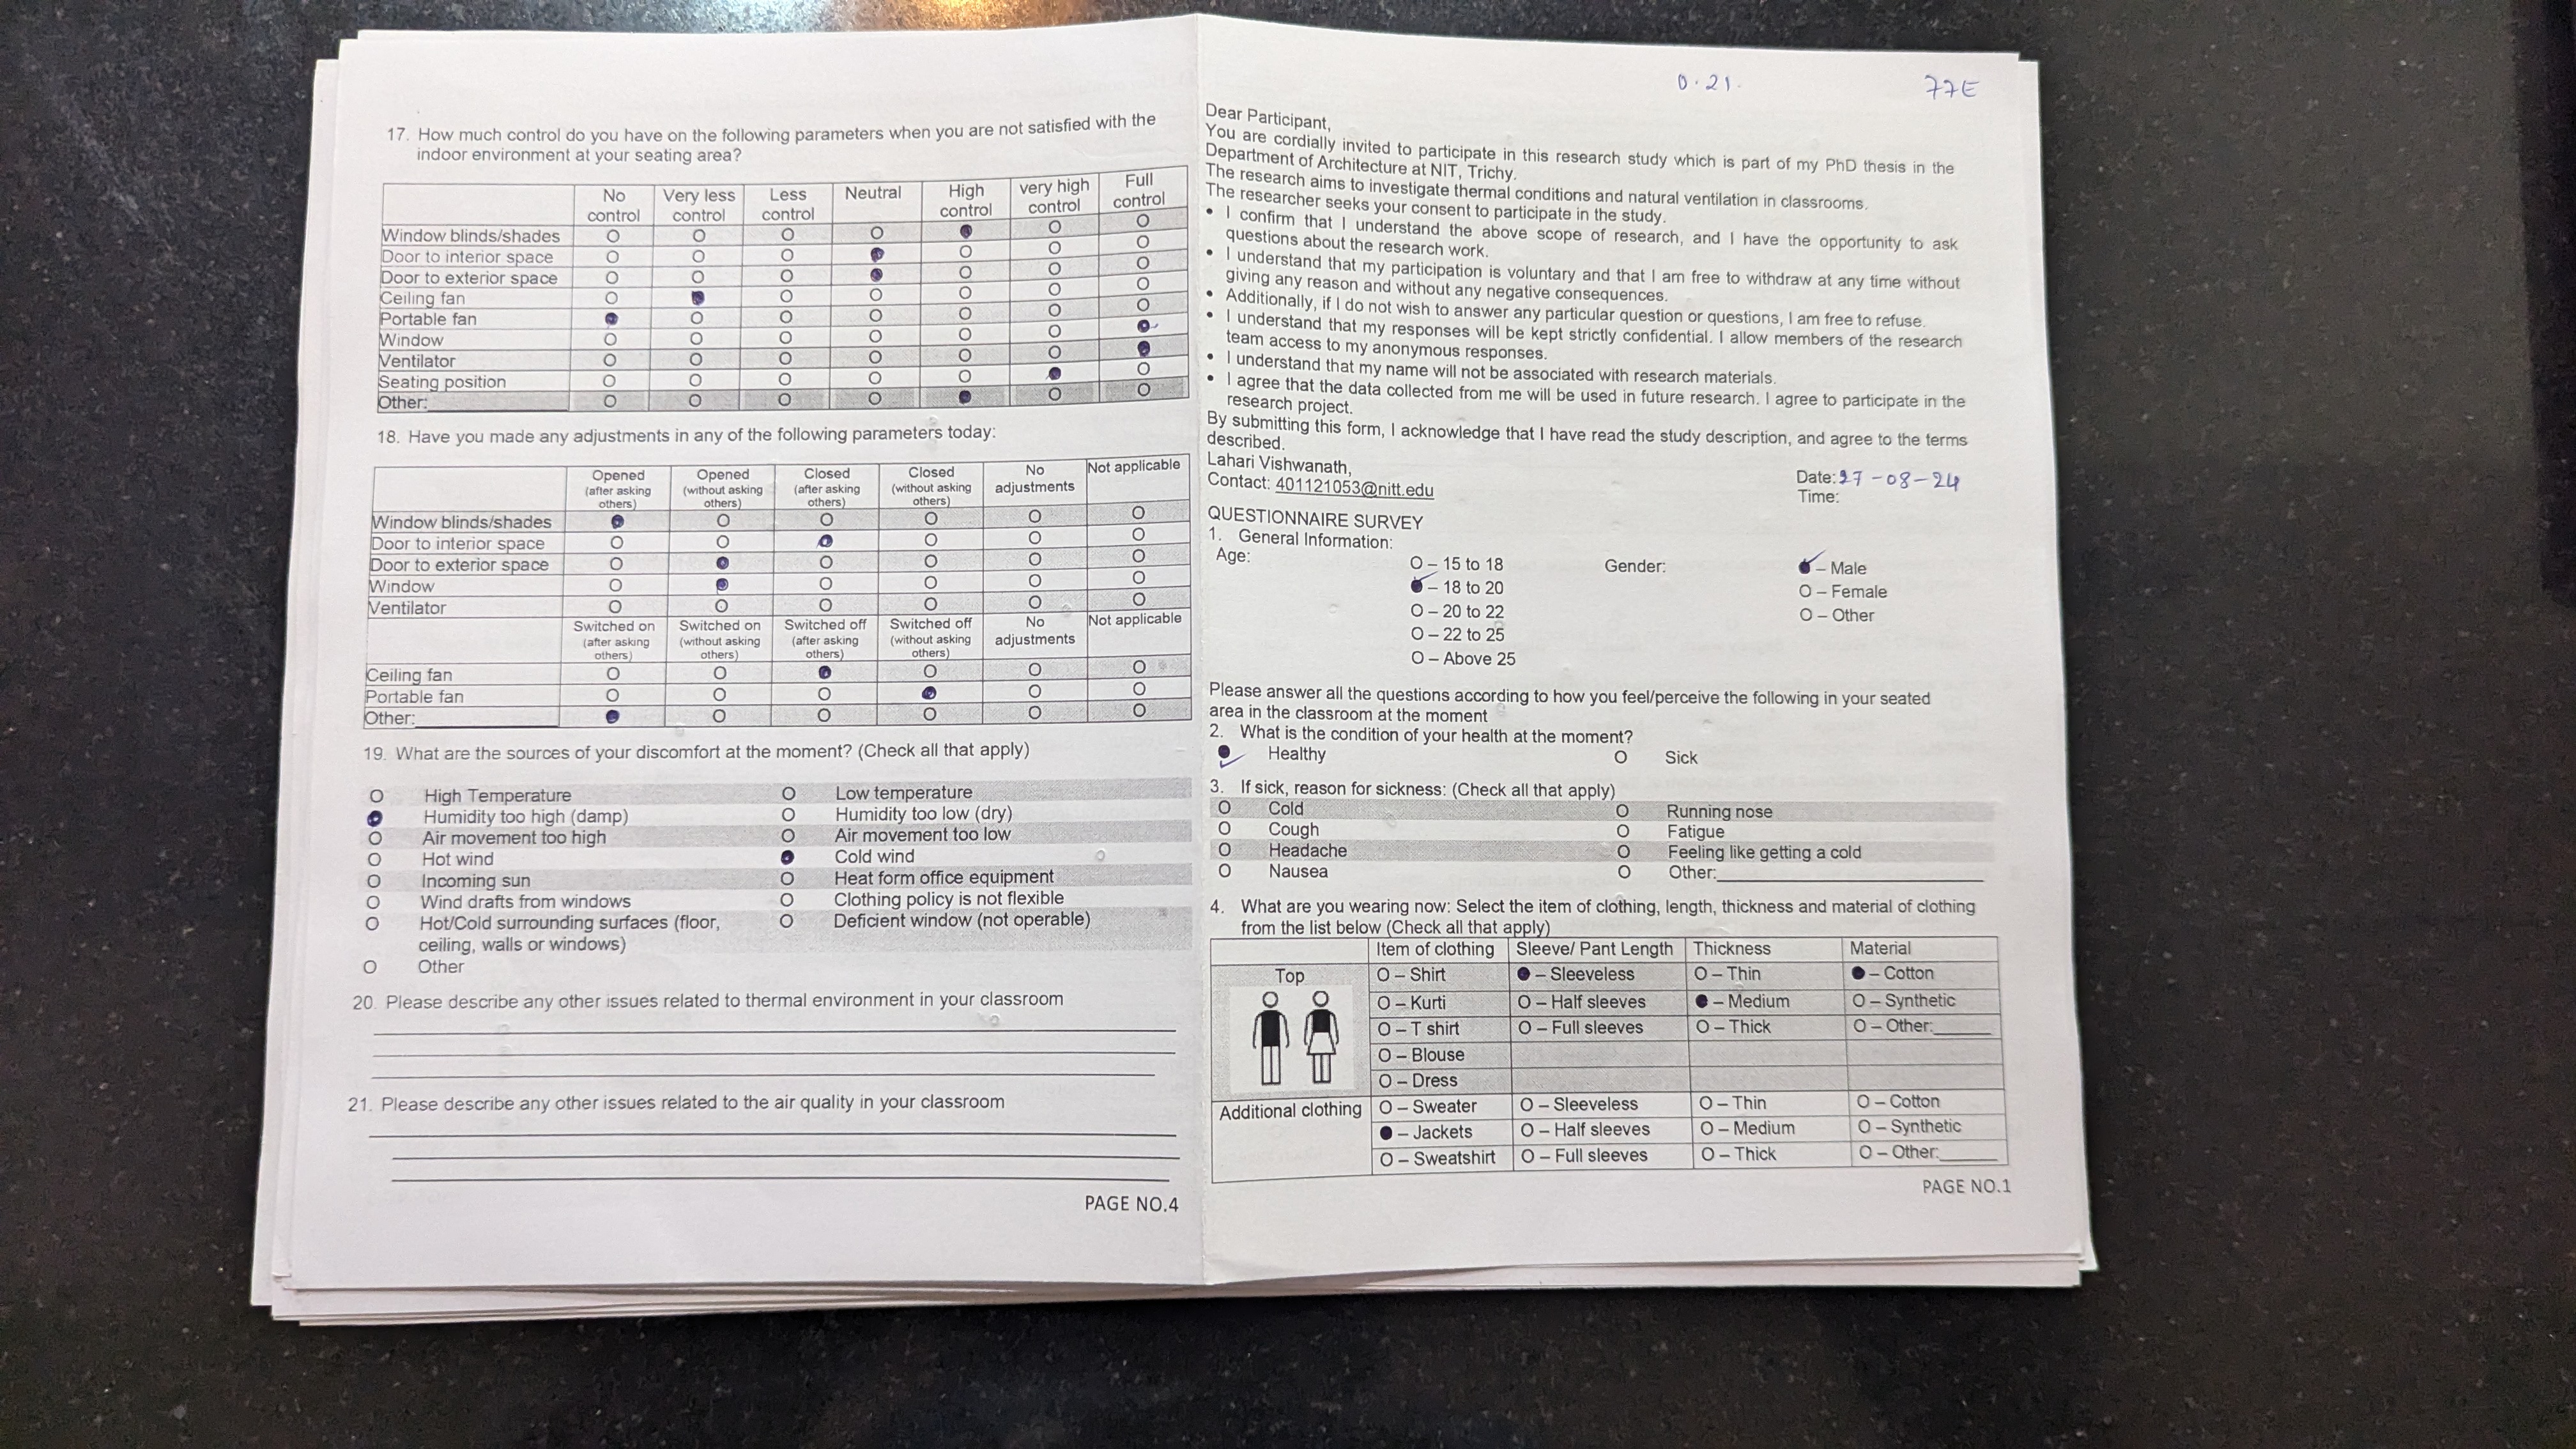 17. How much control do you have on the following parameters when you are not satisfied with the
indoor environment at your seating area?
No control Very less control Less control Neutral High control very high control Full control
Window blinds/shades O O O O ● O O
Door to interior space O O O ● O O O
Door to exterior space O O O ● O O O
Ceiling fan O ● O O O O O
Portable fan ● O O O O O O
Window O O O O O O ●
Ventilator O O O O O O ●
Seating position O O O O O ● O
Other: O O O O ● O O
18. Have you made any adjustments in any of the following parameters today:
Opened (after asking others) Opened (without asking others) Closed (after asking others) Closed (without asking others) No adjustments Not applicable
Window blinds/shades ● O O O O O
Door to interior space O O ● O O O
Door to exterior space O ● O O O O
Window O ● O O O O
Ventilator O O O O O O
Switched on (after asking others) Switched on (without asking others) Switched off (after asking others) Switched off (without asking others) No adjustments Not applicable
Ceiling fan O O ● O O O
Portable fan O O O ● O O
Other: ● O O O O O
19. What are the sources of your discomfort at the moment? (Check all that apply)
O High Temperature O Low temperature
● Humidity too high (damp) O Humidity too low (dry)
O Air movement too high O Air movement too low
O Hot wind ● Cold wind
O Incoming sun O Heat form office equipment
O Wind drafts from windows O Clothing policy is not flexible
O Hot/Cold surrounding surfaces (floor, O Deficient window (not operable)
ceiling, walls or windows)
O Other
20. Please describe any other issues related to thermal environment in your classroom
21. Please describe any other issues related to the air quality in your classroom
PAGE NO.4
0.21. 77E
Dear Participant,
You are cordially invited to participate in this research study which is part of my PhD thesis in the
Department of Architecture at NIT, Trichy.
The research aims to investigate thermal conditions and natural ventilation in classrooms.
The researcher seeks your consent to participate in the study.
• I confirm that I understand the above scope of research, and I have the opportunity to ask
questions about the research work.
• I understand that my participation is voluntary and that I am free to withdraw at any time without
giving any reason and without any negative consequences.
• Additionally, if I do not wish to answer any particular question or questions, I am free to refuse.
• I understand that my responses will be kept strictly confidential. I allow members of the research
team access to my anonymous responses.
• I understand that my name will not be associated with research materials.
• I agree that the data collected from me will be used in future research. I agree to participate in the
research project.
By submitting this form, I acknowledge that I have read the study description, and agree to the terms
described.
Lahari Vishwanath,
Contact: 401121053@nitt.edu
Date: 27-08-24
Time:
QUESTIONNAIRE SURVEY
1. General Information:
Age: O – 15 to 18 Gender: ● – Male
● – 18 to 20 O – Female
O – 20 to 22 O – Other
O – 22 to 25
O – Above 25
Please answer all the questions according to how you feel/perceive the following in your seated
area in the classroom at the moment
2. What is the condition of your health at the moment?
● Healthy O Sick
3. If sick, reason for sickness: (Check all that apply)
O Cold O Running nose
O Cough O Fatigue
O Headache O Feeling like getting a cold
O Nausea O Other:
4. What are you wearing now: Select the item of clothing, length, thickness and material of clothing
from the list below (Check all that apply)
Item of clothing Sleeve/ Pant Length Thickness Material
Top O – Shirt ● – Sleeveless O – Thin ● – Cotton
O – Kurti O – Half sleeves ● – Medium O – Synthetic
O – T shirt O – Full sleeves O – Thick O – Other:
O – Blouse
O – Dress
Additional clothing O – Sweater O – Sleeveless O – Thin O – Cotton
● – Jackets O – Half sleeves O – Medium O – Synthetic
O – Sweatshirt O – Full sleeves O – Thick O – Other:
PAGE NO.1